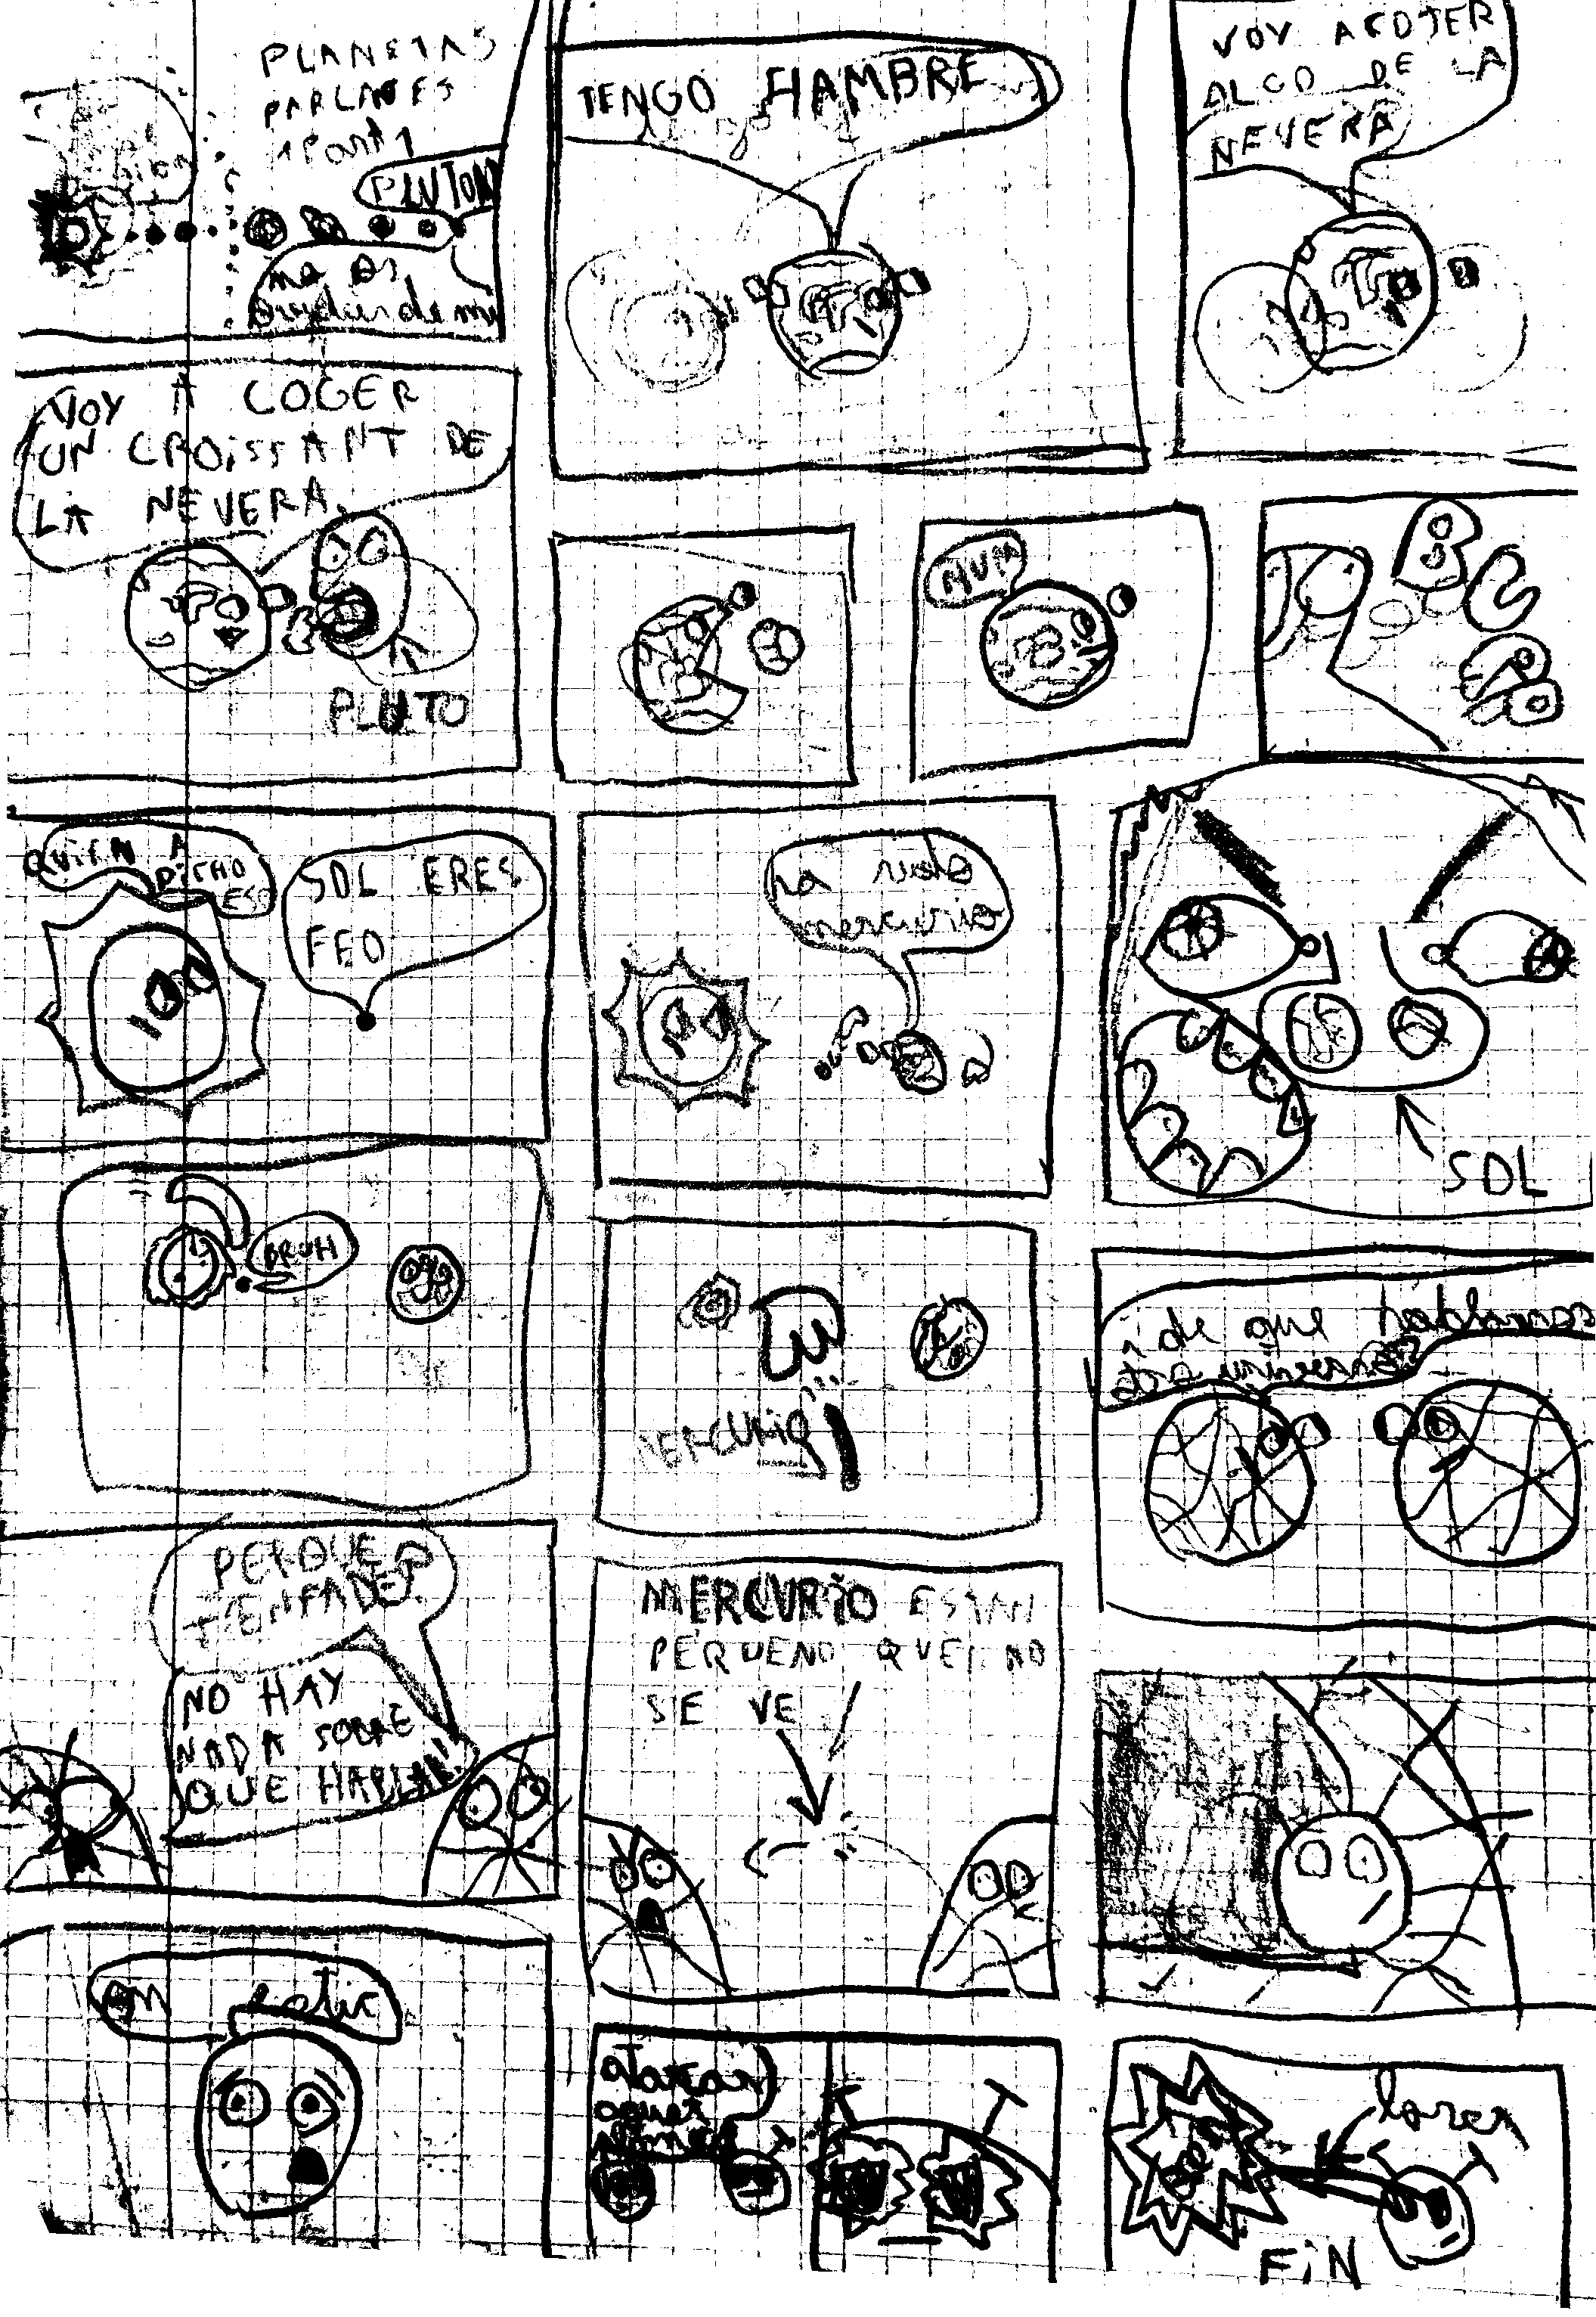 PLANETAS
PARLANES
1 Part 1
PLUTON
no os
olvideis de mi
TENGO HAMBRE
VOY A COJER
ALGO DE LA
NEVERA
VOY A COGER
UN CROISSANT DE
LA NEVERA.
PLUTO
ÑUM
QUIEN A
DICHO
ESO
SOL ERES
FEO
ha sido
mercurio
SOL
BRUH
MERCURIO
¿de que hablamos
PERQUE
T'ENFADES?
NO HAY
NADA SOBRE
QUE HABLAR!
MERCURIO ES TAN
PEQUENO QUE NO
SE VE
on estic
laser
FIN